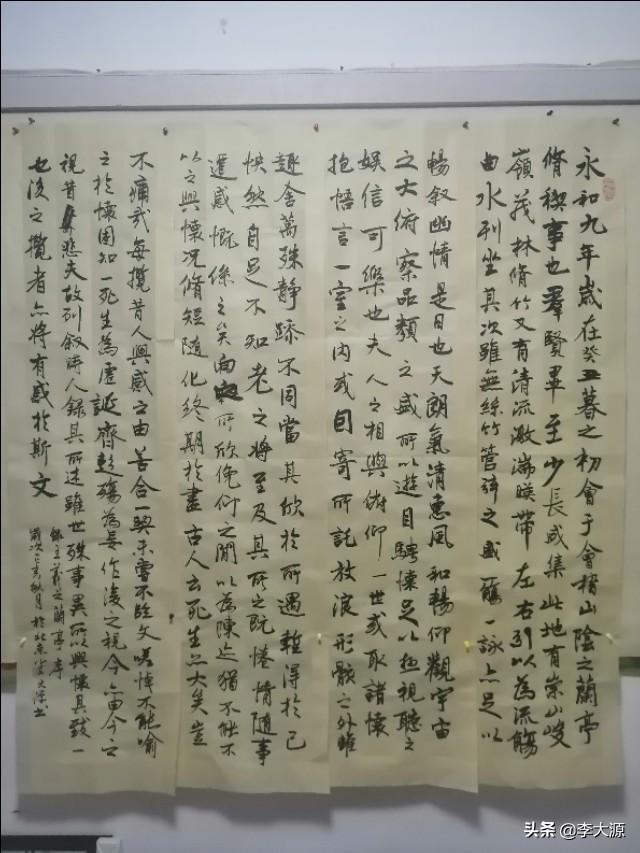 永和九年歲在癸丑暮之初會于會稽山陰之蘭亭
脩稧事也羣賢畢至少長咸集此地有崇山峻
嶺茂林脩竹又有清流激湍暎帶左右引以為流觴
曲水列坐其次雖無絲竹管弦之盛觴一詠亦足以
暢叙幽情是日也天朗氣清惠風和暢仰觀宇宙
之大俯察品類之盛所以遊目騁懷足以極視聽之
娛信可樂也夫人之相與俯仰一世或取諸懷
抱悟言一室之內或因寄所託放浪形骸之外雖
趣舍萬殊靜躁不同當其欣於所遇輒得於己
怏然自足不知老之將至及其所之既惓情隨事
遷感慨係之矣向之所欣俛仰之閒以為陳迹猶不能不
以之興懷況脩短隨化終期於盡古人云死生亦大矣豈
不痛哉每攬昔人興感之由若合一契未嘗不臨文嗟悼不能喻
之於懷固知一死生為虛誕齊彭殤為妄作後之視今亦由今之
視昔悲夫故列叙時人錄其所述雖世殊事異所以興懷其致一
也後之攬者亦將有感於斯文
錄王羲之蘭亭序
歲次己亥秋月於北京李大源書
头条 @李大源